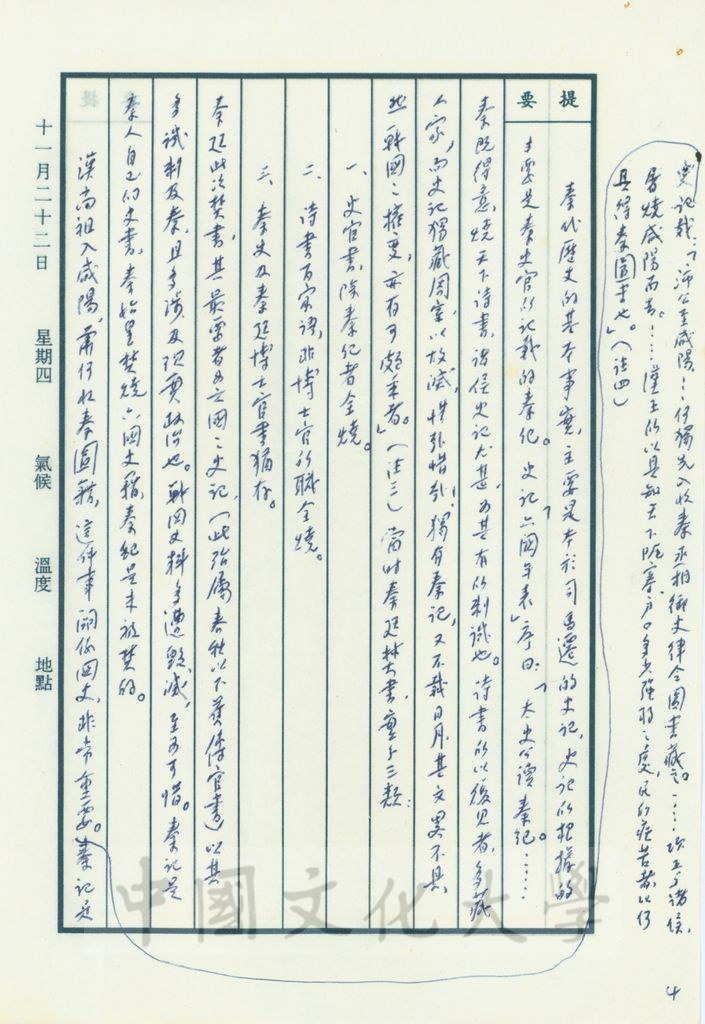 提要
秦代歷史的基本事實，主要是本於司馬遷的史記，史記的根據的
主要是秦史官所記載的秦紀。史記「六國年表」序曰：「太史公讀秦紀。……
秦既得意，燒天下詩書，諸侯史記尤甚，為其有所刺譏也。詩書所以復見者，多藏
人家，而史記獨藏周室，以故滅，惜哉惜哉！獨有秦記，又不載日月，其文略不具，
然戰國之權變，亦有可頗采者。」（註三）當時秦廷焚書，重點三類：
一、史官書，除秦紀者全燒。
二、詩書百家語，非博士官所職全燒。
三、秦史及秦廷博士官書猶存。
秦廷此次焚書，其最要者為六國之史記，（此殆屬春秋以下舊傳官書）以其
多譏刺及秦，且多涉及現實政治也。戰國史料多遭毀滅，至為可惜。秦記是
秦人自己的史書，秦始皇焚燒六國史籍，秦紀是未被焚的。
漢高祖入咸陽，蕭何收秦圖籍，這件事關係國史，非常重要。秦記是
史記載：「沛公至咸陽……何獨先入收秦丞相御史律令圖書藏之。……項王與諸侯，
屠燒咸陽而去。……漢王所以具知天下阨塞，戶口多少強弱之處，民所疾苦者，以何
具得秦圖書也。」（註四）
十一月二十二日 星期四 氣候 溫度 地點
4
中國文化大學